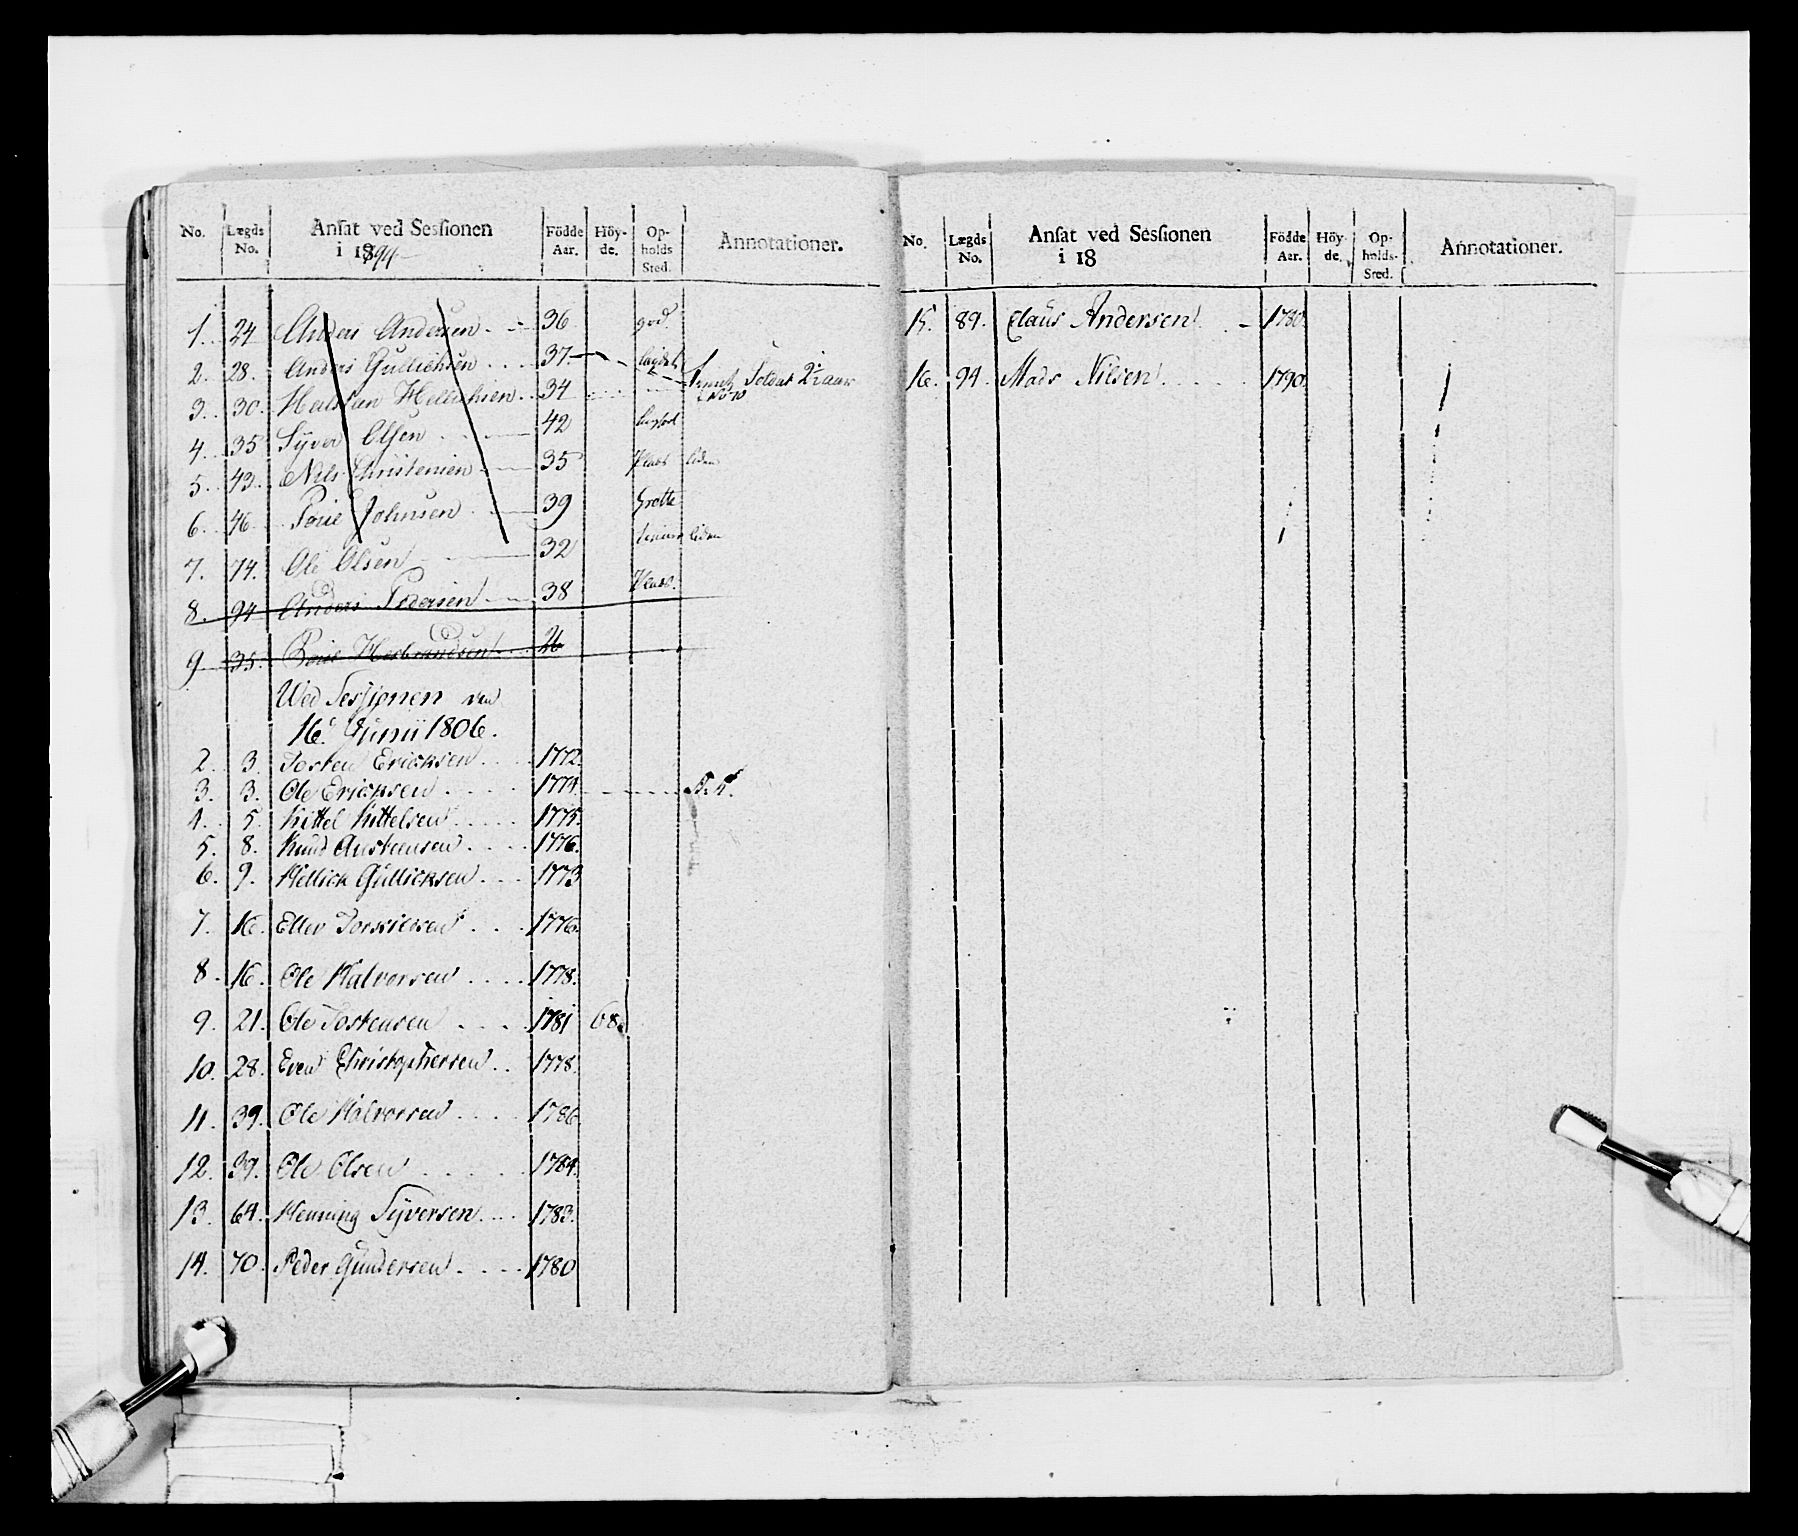 No. Lægds No. Ansat ved Sessionen i 1794 Födde Aar. Höyde. Opholds Sted. Annotationer.
1. 24 Anders Andersen 36 god
2. 28. Anders Gullichsen 37
3. 30. Hellichsen 34 Soldat 2½ aar
4. 35 Syver Olsen 42
5. 43. Nils Christensen 35
6. 46. Johnsen 39 Grotte
7. 74. Ole Olsen 32
8. 94 Anders Pedersen 38
9. 35. Herbrandsen 26
Wed Sessionen den
16. Junii 1806.
2. 3. Tosten Ericksen 1772.
3. 3. Ole Ericksen 1774.
4. 5. Kittel Kittelsen 1775.
5. 8. Knud Austensen 1776.
6. 9. Hellick Gullicksen 1773
7. 16. Ellev 1776.
8. 16. Ole Halvorsen 1778.
9. 21. Ole Tostensen 1781 68.
10. 28. Even Christophersen 1778.
11. 39. Ole Halvorsen 1786
12. 39. Ole Olsen 1784.
13. 64. Henning Syversen 1783.
14. 70. Peder Gundersen 1780
No. Lægds No. Ansat ved Sessionen i 18 Födde Aar. Höyde. Opholds-Sted. Annotationer.
15. 89. Claus Andersen 1780.
16. 94. Mads Nilsen 1790.